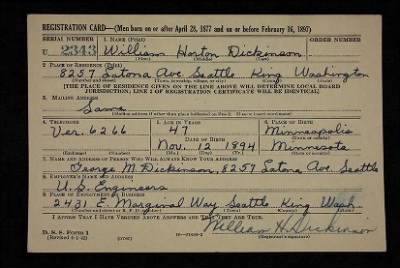 REGISTRATION CARD—(Men born on or after April 28, 1877 and on or before February 16, 1897)
SERIAL NUMBER 1. NAME (Print) ORDER NUMBER
U 2343 William Horton Dickinson
2. PLACE OF RESIDENCE (Print)
8257 Latona Ave. Seattle King Washington
[THE PLACE OF RESIDENCE GIVEN ON THE LINE ABOVE WILL DETERMINE LOCAL BOARD
JURISDICTION; LINE 2 OF REGISTRATION CERTIFICATE WILL BE IDENTICAL]
3. MAILING ADDRESS
Same
[Mailing address if other than place indicated on line 2. If same insert word same]
4. TELEPHONE 5. AGE IN YEARS 6. PLACE OF BIRTH
Ver. 6266 47 Minneapolis
DATE OF BIRTH
Nov. 12 1894 Minnesota
7. NAME AND ADDRESS OF PERSON WHO WILL ALWAYS KNOW YOUR ADDRESS
George M. Dickinson, 8257 Latona Ave. Seattle
8. EMPLOYER'S NAME AND ADDRESS
U.S. Engineers
9. PLACE OF EMPLOYMENT OR BUSINESS
2431 E. Marginal Way Seattle King Wash.
I AFFIRM THAT I HAVE VERIFIED ABOVE ANSWERS AND THAT THEY ARE TRUE.
D. S. S. Form 1
William H. Dickinson
(Registrant's signature)